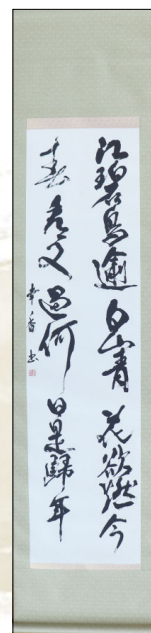 江碧鳥逾白山青花欲燃今
春看又過何日是歸年
幸香書